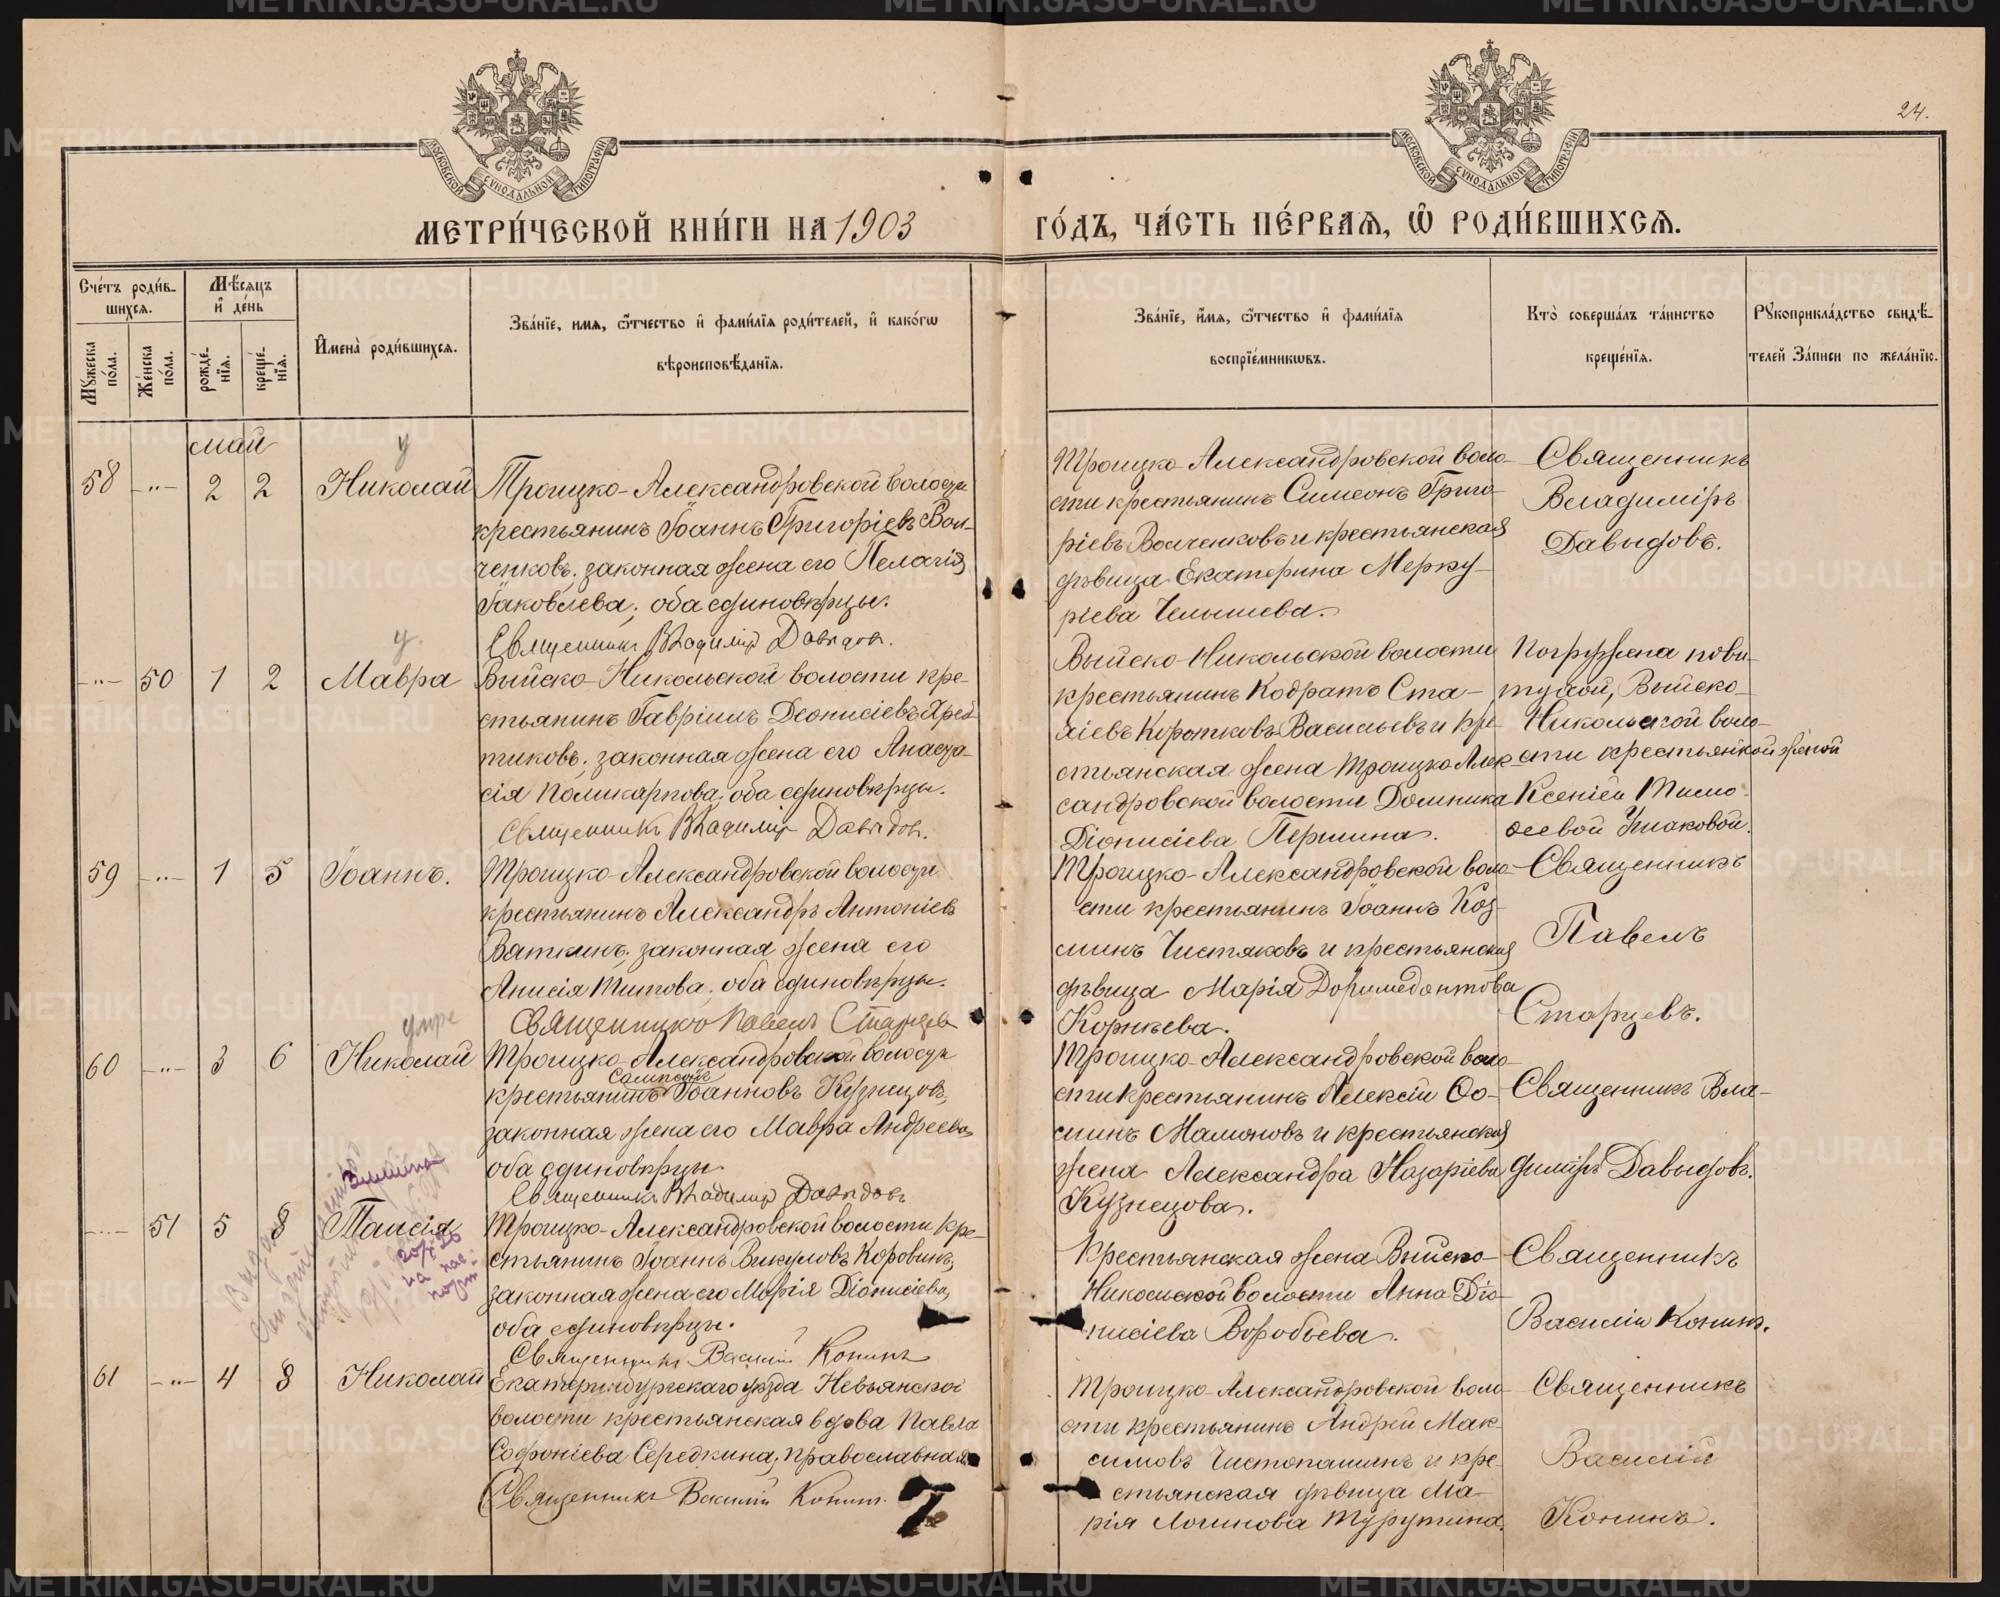 МОСКОВСКОЙ СѴНОДАЛЬНОЙ ТИПОГРАФІИ
МОСКОВСКОЙ СѴНОДАЛЬНОЙ ТИПОГРАФІИ
24.
МЕТРИ́ЧЕСКОЙ КНИ́ГИ НА 1903 ГО́ДЪ, ЧА́СТЬ ПЕ́РВАЯ, Ѡ РОДИ́ВШИХСЯ.
Сче́тъ роди́в-
шихся.
Мѣ́сяцъ
и҆ де́нь
Мꙋ́жеска по́ла.
Же́нска по́ла.
рожде́-
нїя.
креще́-
нїя.
И҆мена̀ роди́вшихся.
Зва́нїе, имя, ѻ҆́тчество и҆ фами́лїя роди́телей, и҆ како́гѡ
вѣроисповѣ́данїя.
Зва́нїе, и҆́мя, ѻ҆́тчество и҆ фами́лїя
воспрїе́мникѡвъ.
Кто̀ соверша́лъ та́инство
креще́нїя.
Рꙋкоприкла́дство свидѣ́-
телей За́писи по жела́нїю.
май
у
58 -"- 2 2 Николай
Троицко-Александровской волости
крестьянинъ Іоаннъ Григоріевъ Вол-
ченковъ, законная жена его Пелагія
Іаковлева; оба единовѣрцы.
Священникъ Владиміръ Давыдовъ.
Троицко-Александровской воло-
сти крестьянинъ Симеонъ Григо-
ріевъ Волченковъ и крестьянская
дѣвица Екатерина Мерку-
ріева Челышева.
Священникъ
Владиміръ
Давыдовъ.
у.
-"- 50 1 2 Мавра
Выйско-Никольской волости кре-
стьянинъ Гавріилъ Діонисіевъ
тиковъ, законная жена его Анаста-
сія Поликарпова, оба единовѣрцы.
Священникъ Владиміръ Давыдовъ.
Выйско-Никольской волости
крестьянинъ Кодратъ Ста-
хіевъ Коротковъ Васильевъ и кре-
стьянская жена Троицко Алек-
сандровской волости Домника
Діонисіева Першина.
Погружена пови-
тухой, Выйско-
Никольской воло-
сти крестьянской женой
Ксеніей Тимо-
ѳеевой Ушаковой.
59 -"- 1 5 Іоаннъ.
Троицко-Александровской волости
крестьянинъ Александръ Антоніевъ
Ваткинъ, законная жена его
Анисія Титова, оба единовѣрцы.
Священникъ Павелъ Старцевъ
Троицко-Александровской воло-
сти крестьянинъ Іоаннъ Коз-
минъ Чистяковъ и крестьянская
дѣвица Марія Доримедонтова
Корнѣева.
Священникъ
Павелъ
Старцевъ.
умре
60 -"- 3 6 Николай
Троицко-Александровской волости
Сампсонъ
крестьянинъ Іоанновъ Кузнецовъ,
законная жена его Мавра Андреева
оба единовѣрцы.
Священникъ Владиміръ Давыдовъ
Троицко-Александровской воло-
сти крестьянинъ Алексій Ѳо-
минъ Мамоновъ и крестьянская
жена Александра Назаріева
Кузнецова.
Священникъ Вла-
диміръ Давыдовъ.
---- 51 5 8 Таисія
Троицко-Александровской волости кре-
стьянинъ Іоаннъ Викуловъ Коровинъ,
законная жена его Марія Діонисіева,
оба единовѣрцы.
Священникъ Василій Конинъ
Крестьянская жена Выйско-
Никольской волости Анна Діо-
нисіева Воробьева.
Священникъ
Василій Конинъ.
61 -"- 4 8 Николай
Екатеринбургскаго уѣзда Невьянской
волости крестьянская вдова Павла
Софоніева Середкина, православная
Священникъ Василій Конинъ.
Троицко-Александровской воло-
сти крестьянинъ Андрей Мак-
симовъ Чистопашинъ и кре-
стьянская дѣвица Ма-
рія Логинова Турутина.
Священникъ
Василій
Конинъ.